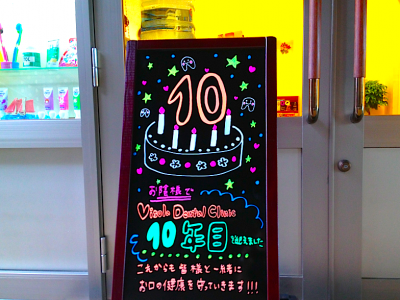 10
お陰様で
Miracle Dental Clinic
10年目
を迎えました
これからも皆様と一緒に
お口の健康を守っていきます!!!